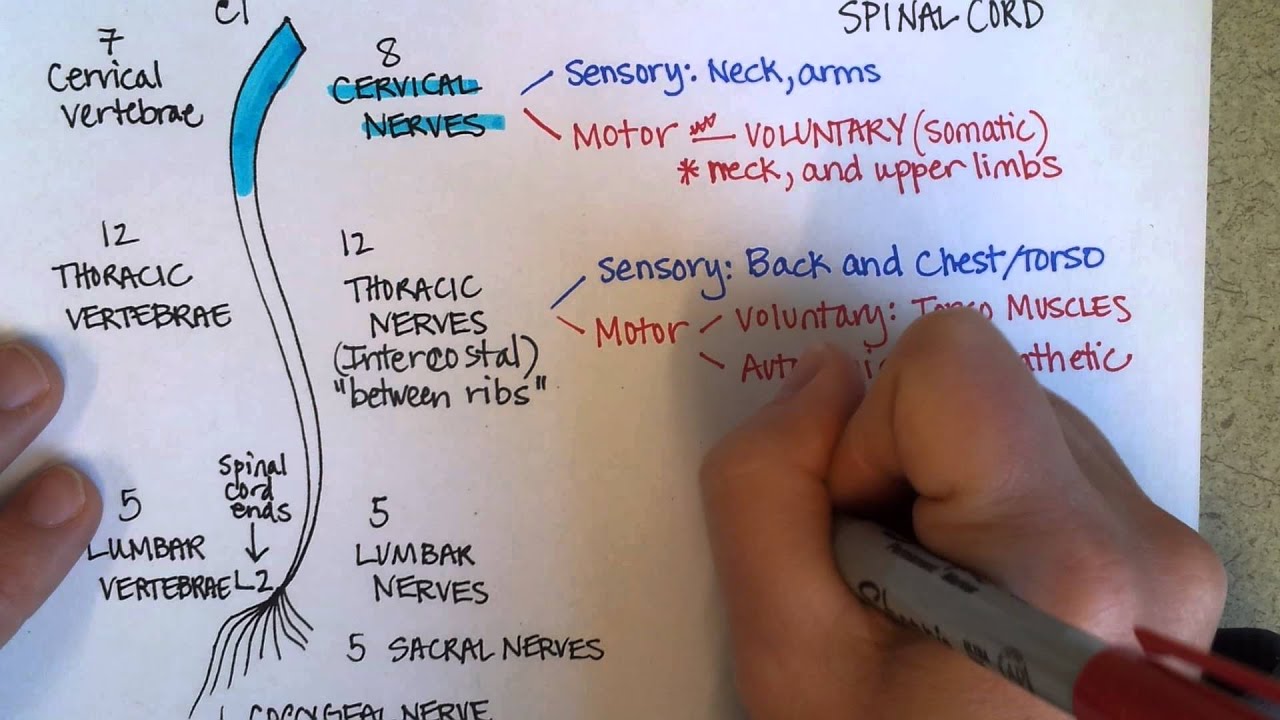 C1
SPINAL CORD
7
Cervical
vertebrae
8
CERVICAL
NERVES
Sensory: Neck, arms
Motor — VOLUNTARY (somatic)
* neck, and upper limbs
12
THORACIC
VERTEBRAE
12
THORACIC
NERVES
(Intercostal)
"between ribs"
Sensory: Back and Chest/Torso
Motor
Voluntary: Torso MUSCLES
Spinal
cord
ends
L2
5
LUMBAR
VERTEBRAE
5
LUMBAR
NERVES
5 SACRAL NERVES
1 COCCYGEAL NERVE